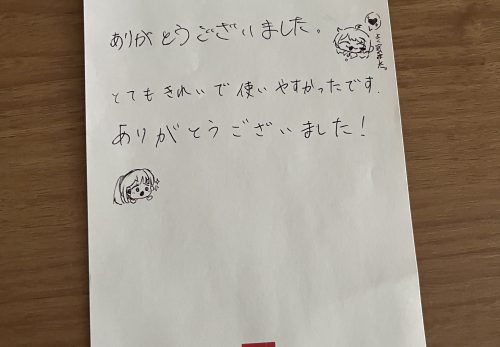 ありがとうございました。
とてもきれいで使いやすかったです.
ありがとうございました!